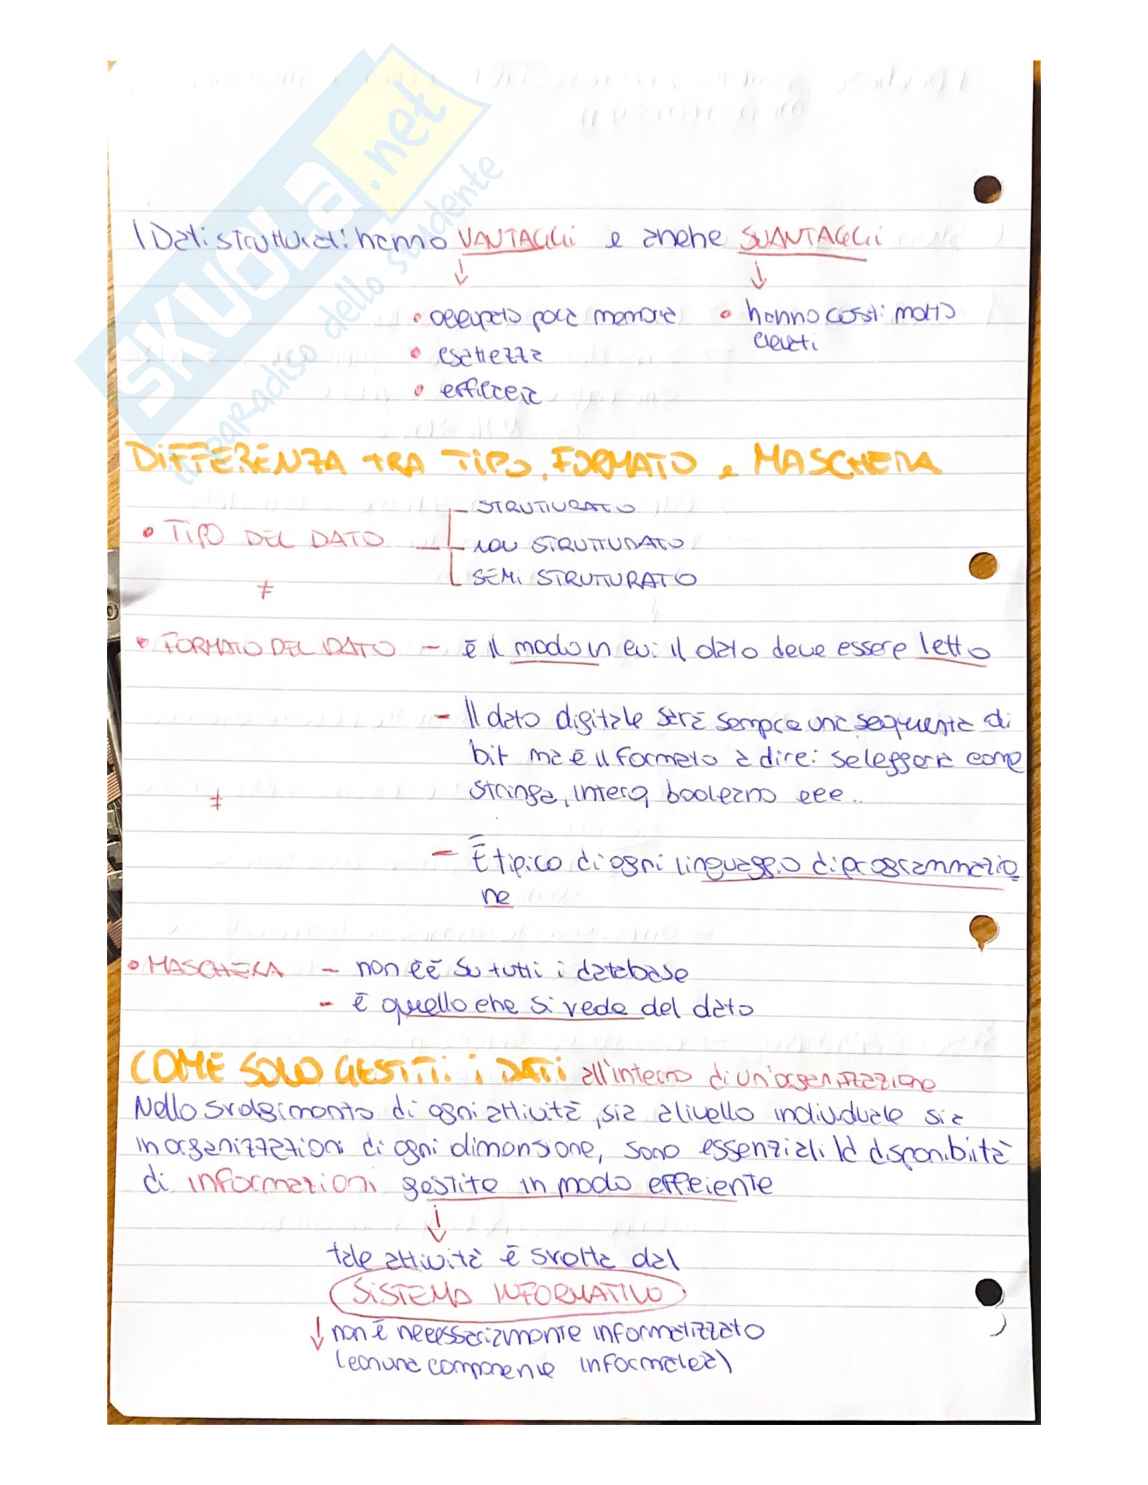 SKUOLA.net
il paradiso dello studente
I Dati strutturati hanno VANTAGGI e anche SVANTAGGI
• occupato poca memoria • hanno costi molto
elevati
• esattezza
• efficacia
DIFFERENZA TRA TIPO, FORMATO e MASCHERA
STRUTTURATO
• TIPO DEL DATO NON STRUTTURATO
SEMI STRUTTURATO
≠
• FORMATO DEL DATO - è il modo in cui il dato deve essere letto
- Il dato digitale sarà sempre una sequenza di
bit ma è il formato a dire: se leggerà come
≠ stringa, intero, booleano ecc..
- È tipico di ogni linguaggio di programmazio
ne
• MASCHERA - non c'è su tutti i database
- è quello che si vede del dato
COME SOLO GESTITI i DATI all'interno di un'organizzazione
Nello svolgimento di ogni attività, sia a livello individuale sia
in organizzazioni di ogni dimensione, sono essenziali la disponibilità
di informazioni gestite in modo efficiente
tale attività è svolta dal
SISTEMA INFORMATIVO
non è necessariamente informatizzato
(con una componente informatica)